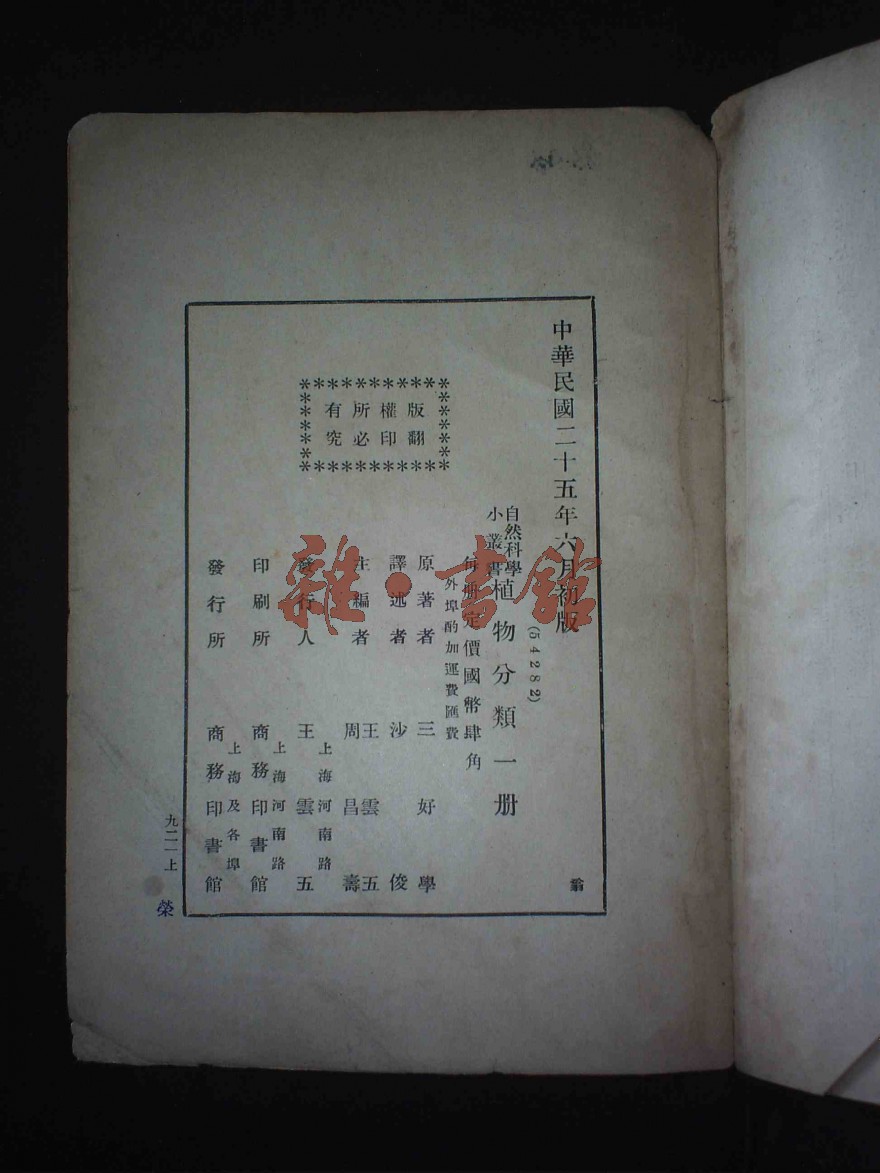 中華民國二十五年六月初版
(54282)
自然科學
小叢書
植物分類一册
每册定價國幣肆角
外埠酌加運費匯費
版權所有
翻印必究
原著者 三好學
譯述者 沙俊
主編者 王雲五
周昌壽
發行人 王雲五
上海河南路
印刷所 商務印書館
上海河南路
發行所 商務印書館
上海及各埠
九二一上
榮
雜·書館